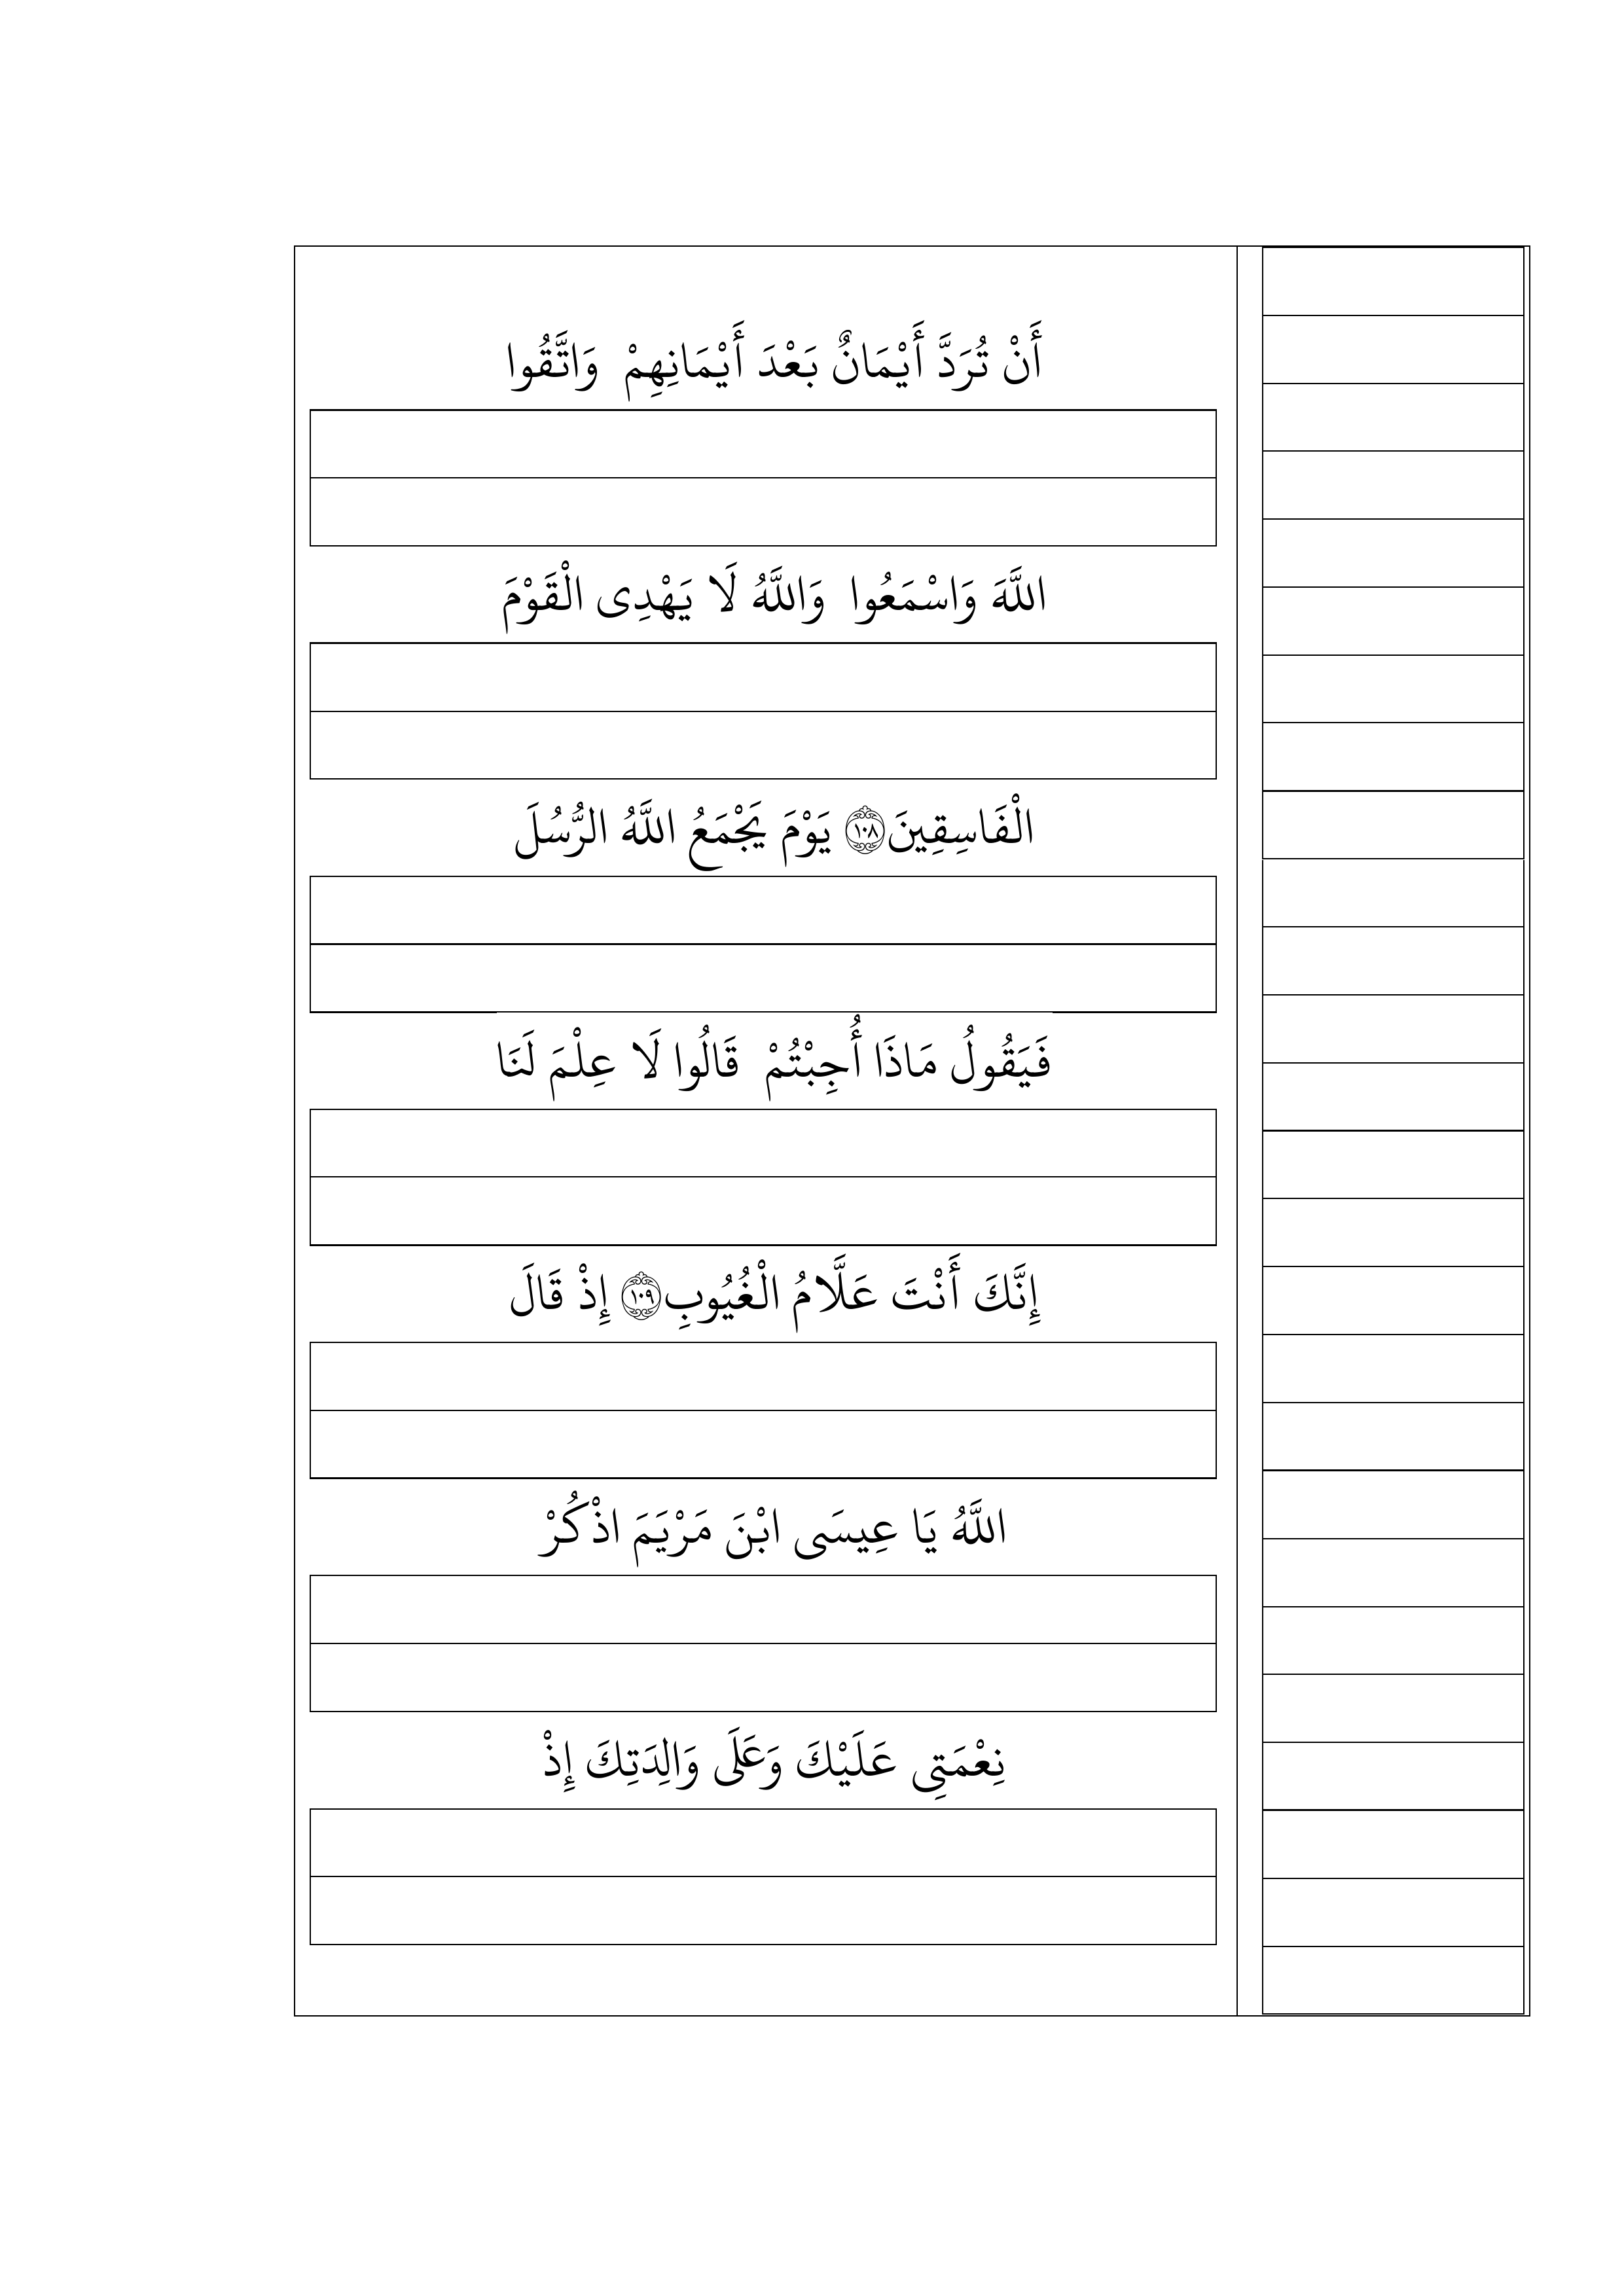 أَنْ تُرَدَّ أَيْمَانٌ بَعْدَ أَيْمَانِهِمْ وَاتَّقُوا
اللَّهَ وَاسْمَعُوا وَاللَّهُ لَا يَهْدِى الْقَوْمَ
الْفَاسِقِينَ ﴿١٠٨﴾ يَوْمَ يَجْمَعُ اللَّهُ الرُّسُلَ
فَيَقُولُ مَاذَا أُجِبْتُمْ قَالُوا لَا عِلْمَ لَنَا
إِنَّكَ أَنْتَ عَلَّامُ الْغُيُوبِ ﴿١٠٩﴾ إِذْ قَالَ
اللَّهُ يَا عِيسَى ابْنَ مَرْيَمَ اذْكُرْ
نِعْمَتِى عَلَيْكَ وَعَلَى وَالِدَتِكَ إِذْ